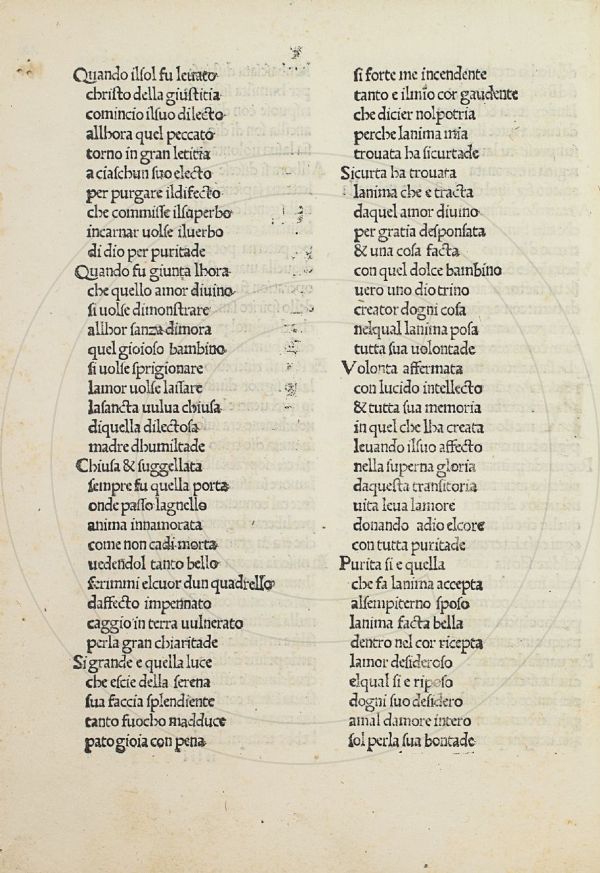 Quando ilsol fu leuato
christo della giustitia
comincio ilsuo dilecto
allhora quel peccato
torno in gran letitia
a ciaschun suo electo
per purgare ildifecto
che commisse ilsuperbo
incarnar uolse iluerbo
di dio per puritade
Quando fu giunta lhora
che quello amor diuino
si uolse dimonstrare
allhor sanza dimora
quel gioioso bambino
si uolse sprigionare
lamor uolse lassare
lasancta uulua chiusa
diquella dilectosa
madre dhumiltade
Chiusa & suggellata
sempre fu quella porta
onde passo lagnello
anima innamorata
come non cadi morta
uedendol tanto bello
ferimmi elcuor dun quadrello
daffecto impennato
caggio in terra uulnerato
perla gran chiaritade
Si grande e quella luce
che escie della serena
sua faccia splendiente
tanto fuocho madduce
pato gioia con pena
si forte me incendente
tanto e ilmio cor gaudente
che dicier nolpotria
perche lanima mia
trouata ha sicurtade
Sicurta ha trouata
lanima che e tracta
daquel amor diuino
per gratia desponsata
& una cosa facta
con quel dolce bambino
uero uno dio trino
creator dogni cosa
nelqual lanima posa
tutta sua uolontade
Volonta affermata
con lucido intellecto
& tutta sua memoria
in quel che lha creata
leuando ilsuo affecto
nella superna gloria
daquesta transitoria
uita leua lamore
donando adio elcore
con tutta puritade
Purita si e quella
che fa lanima accepta
alsempiterno sposo
lanima facta bella
dentro nel cor ricepta
lamor desideroso
elqual si e riposo
dogni suo desidero
amal damore intero
sol perla sua bontade